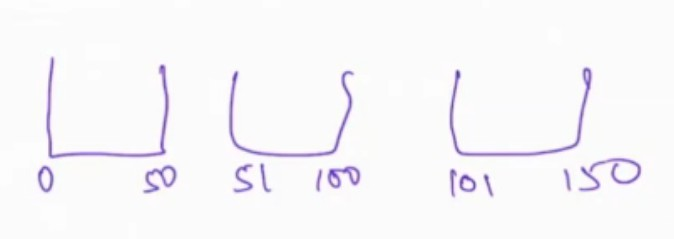 0 50 51 100 101 150